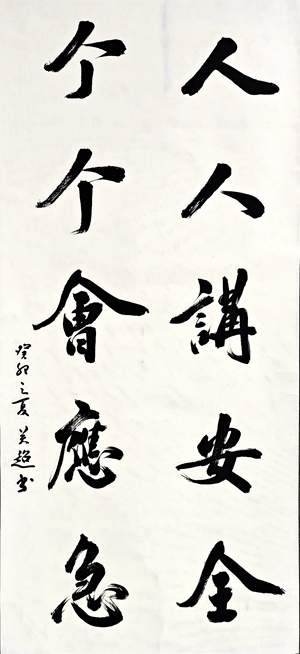 人人講安全
个个會應急
癸卯之夏 吴超书